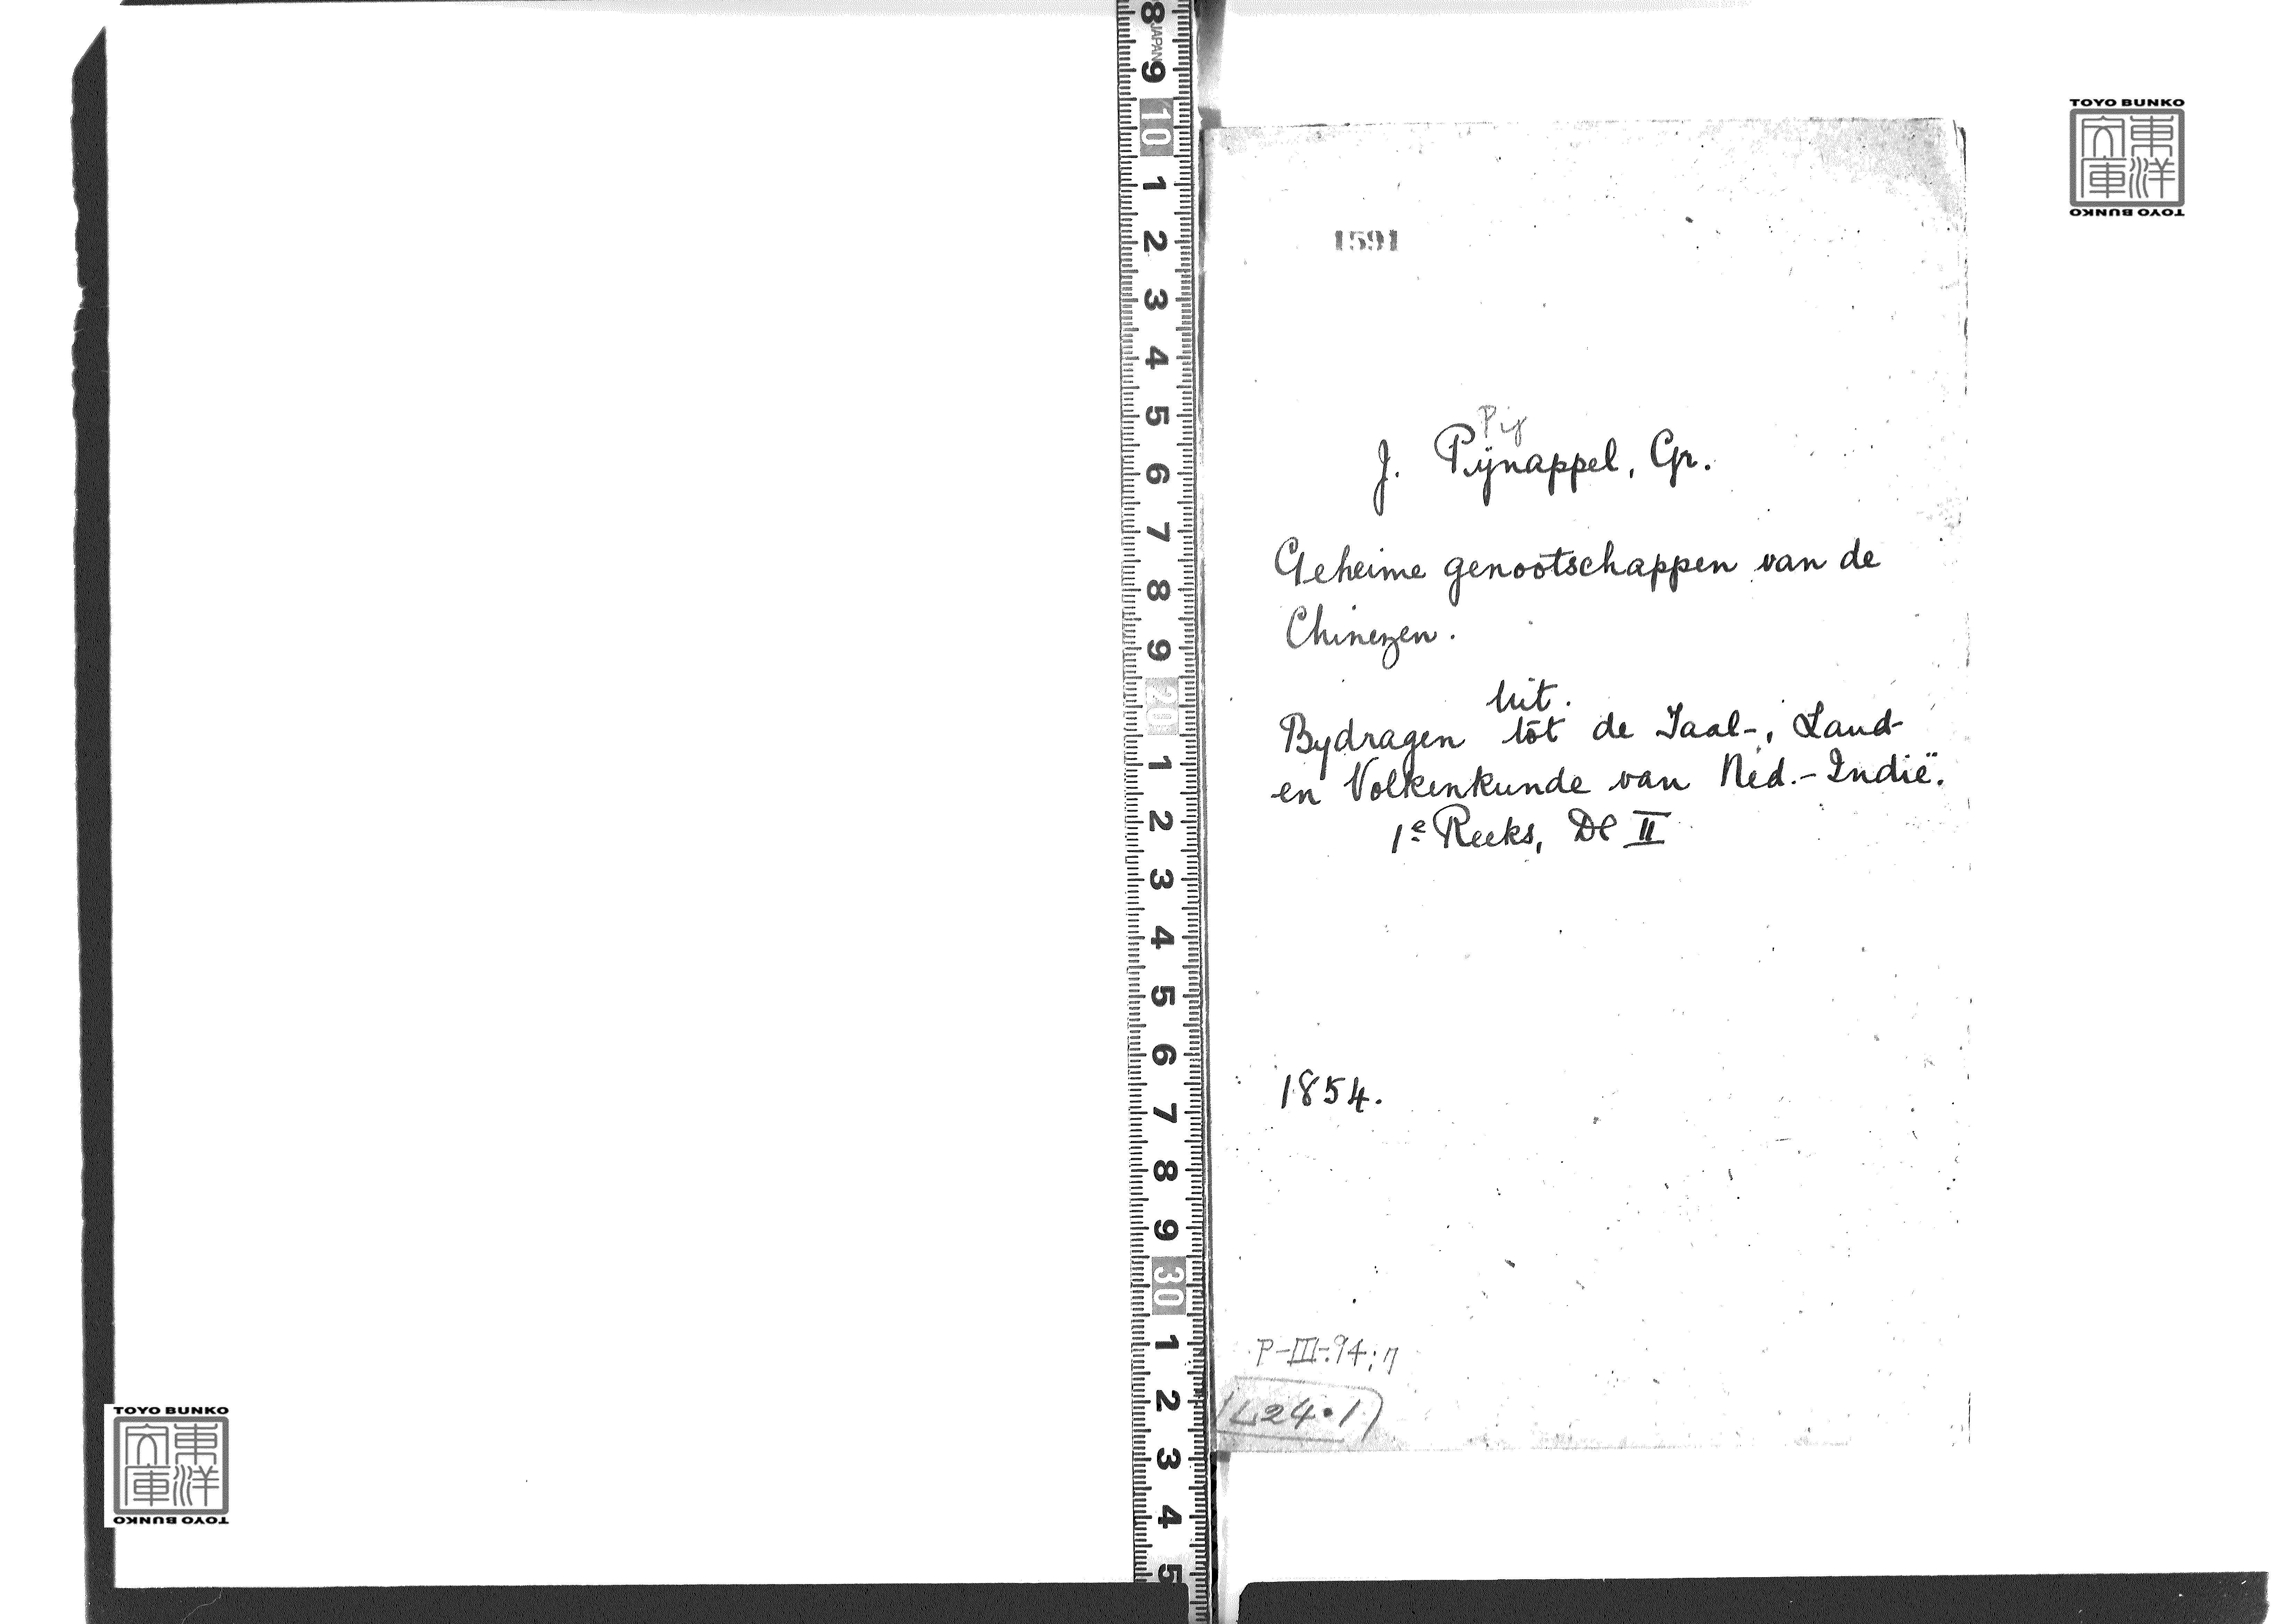 8 JAPAN 9 10 1 2 3 4 5 6 7 8 9 20 1 2 3 4 5 6 7 8 9 30 1 2 3 4 5
TOYO BUNKO
東洋文庫
TOYO BUNKO
1591
Pij
J. Pijnappel, Gr.
Geheime genootschappen van de
Chinezen.
Uit.
Bydragen tot de Taal-, Land-
en Volkenkunde van Ned.-Indië.
1e Reeks, Dl II
1854.
P-III-:94;7
L24.1
TOYO BUNKO
東洋文庫
TOYO BUNKO